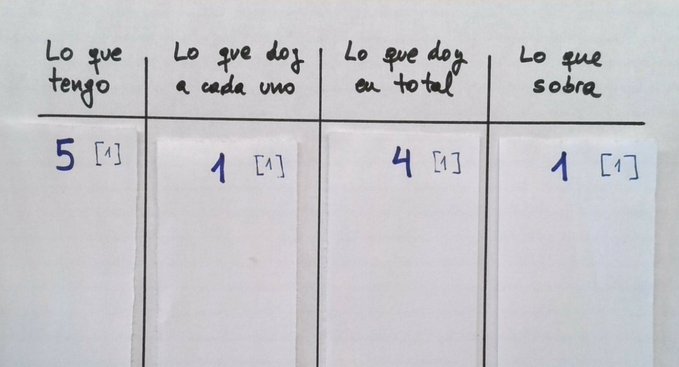 Lo que tengo
Lo que doy a cada uno
Lo que doy en total
Lo que sobra
5 [1]
1 [1]
4 [1]
1 [1]